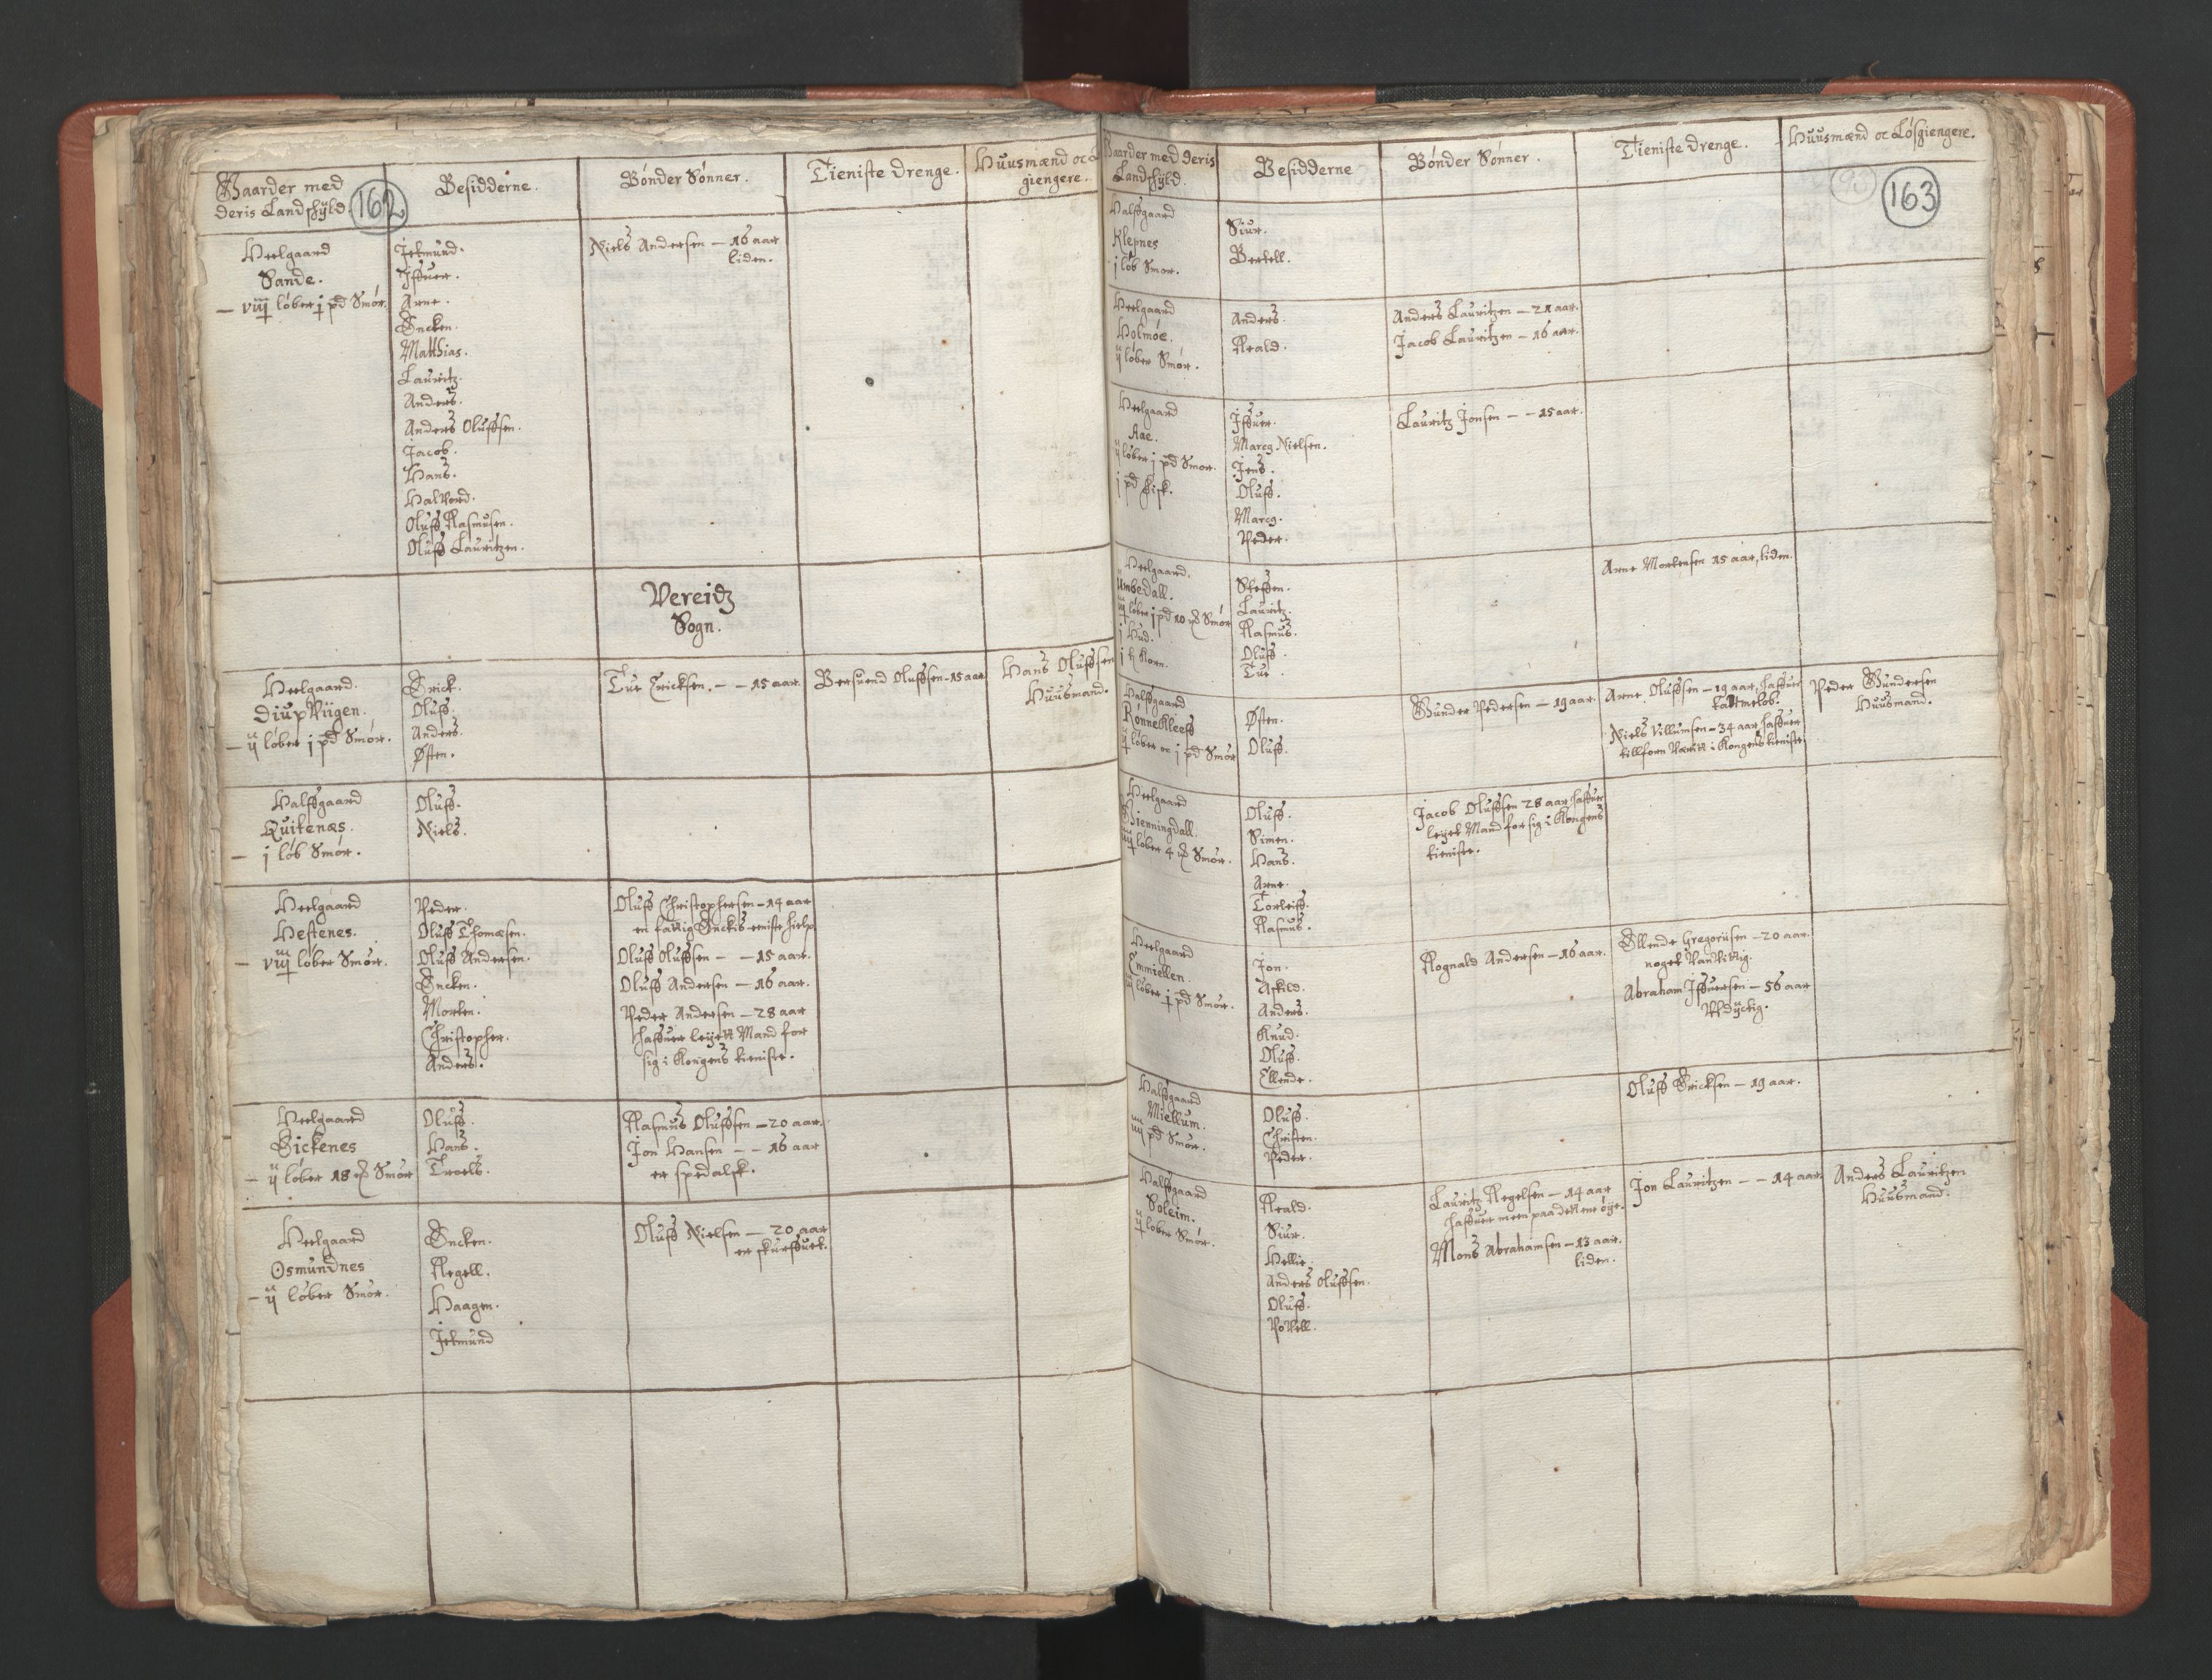 Gaarder med
deris Landskyld.
162
Besidderne.
Bønder Sønner.
Tieniste drenge.
Huusmænd oc L
giengere.
Heelgaard
Sande.
— viij løber j pd Smør.
Jetmund.
Iffuer.
Arne.
Encken.
Matthias.
Lauritz.
Anders.
Anders Oluffsen.
Jacob.
Hans.
Halvord.
Oluff Rasmusen.
Oluff Lauritzen.
Niels Andersen — 16 aar
liden.
Vereidz
Sogn.
Heelgaard.
Diupviigen.
— ij løber j pd Smør.
Erick.
Oluff.
Anders.
Østen.
Tue Ericksen. — — 15 aar.
Bersuend Oluffsen - 15 aar
Hans Oluffsen
Huusmand.
Halffgaard
Quitenæs.
— j løb Smør.
Oluff.
Niels.
Heelgaard
Hestenes.
— viij løber Smør.
Peder.
Oluff Thomæsen.
Oluff Andersen.
Encken.
Morten.
Christopher.
Anders.
Oluff Christophersen - 14 aar
en fattig Enckis eeniste hielp
Oluff Oluffsen — — 15 aar.
Oluff Andersen — 16 aar.
Peder Andersen — 28 aar
haffuer leyett Mand for
sig i Kongens tieniste.
Heelgaard
Eickenes
— ij løber 18 mk Smør
Oluff.
Hans.
Troels.
Rasmus Oluffsen — 20 aar.
Jon Hansen — — 16 aar
er spedalsk.
Heelgaard
Osmundnes
— ij løber Smør.
Encken.
Regell.
Haagen.
Jetmund
Oluff Nielsen — 20 aar
er skurffuet.
Gaarder med deris
Landskyld.
Besidderne
Bønder Sønner.
Tieniste drenge.
Huusmænd oc Løsgiengere.
93
163
Halffgaard
Klepnes
j løb Smør.
Siur.
Bertell.
Heelgaard
Holmøe.
ij løber Smør.
Anders.
Reald.
Anders Lauritzen — 21 aar.
Jacob Lauritzen — 16 aar.
Heelgaard
Aae.
ij løber j pd Smør.
j pd fisk.
Iffuer.
Marcg. Nielsen.
Jens.
Oluff.
Marcg.
Peder.
Lauritz Jonsen — — 15 aar.
Heelgaard.
Umbedall.
løber j pd 10 mk Smør
j Hud.
Korn.
Steffen.
Lauritz.
Rasmus.
Oluff.
Tue.
Arne Mortensen 15 aar, liden.
Halffgaard
Rønnekleeff
ij løber oc j pd Smør
Østen.
Oluff.
Gunder Pedersen — 19 aar.
Arne Oluffsen — 19 aar, haffuer
Niels Villumsen - 34 aar haffuer
tillforn værit i Kongens tieniste
Peder Gundersen
Huusmand.
Heelgaard
Hienningdall.
løber 4 mk Smør.
Oluff.
Simen.
Hans.
Arne.
Torleiff.
Rasmus.
Jacob Oluffsen 28 aar haffuer
leyet Mand for sig i Kongens
tieniste.
Heelgaard
Emmiellen.
løber j pd Smør.
Jon.
Askild.
Anders.
Knud.
Oluff.
Ellende.
Rognald Andersen — 16 aar.
Ellende Gregoriisen — 20 aar.
noget vanvittig.
Abraham Iffuersen — 56 aar
udyctig.
Halffgaard
Miellum.
iiij pd Smør.
Oluff.
Christen.
Peder.
Oluff Ericksen — 19 aar.
Halffgaard
Soleim.
ij løber Smør.
Reald.
Siur.
Hellie.
Anders Oluffsen.
Oluff.
Povell.
Lauritz Regelsen — 14 aar
haffuer meen paa dett ene øye.
Mons Abrahamsen — 13 aar.
liden.
Jon Lauritzen — — 14 aar.
Anders Lauritzen
Huusmand.